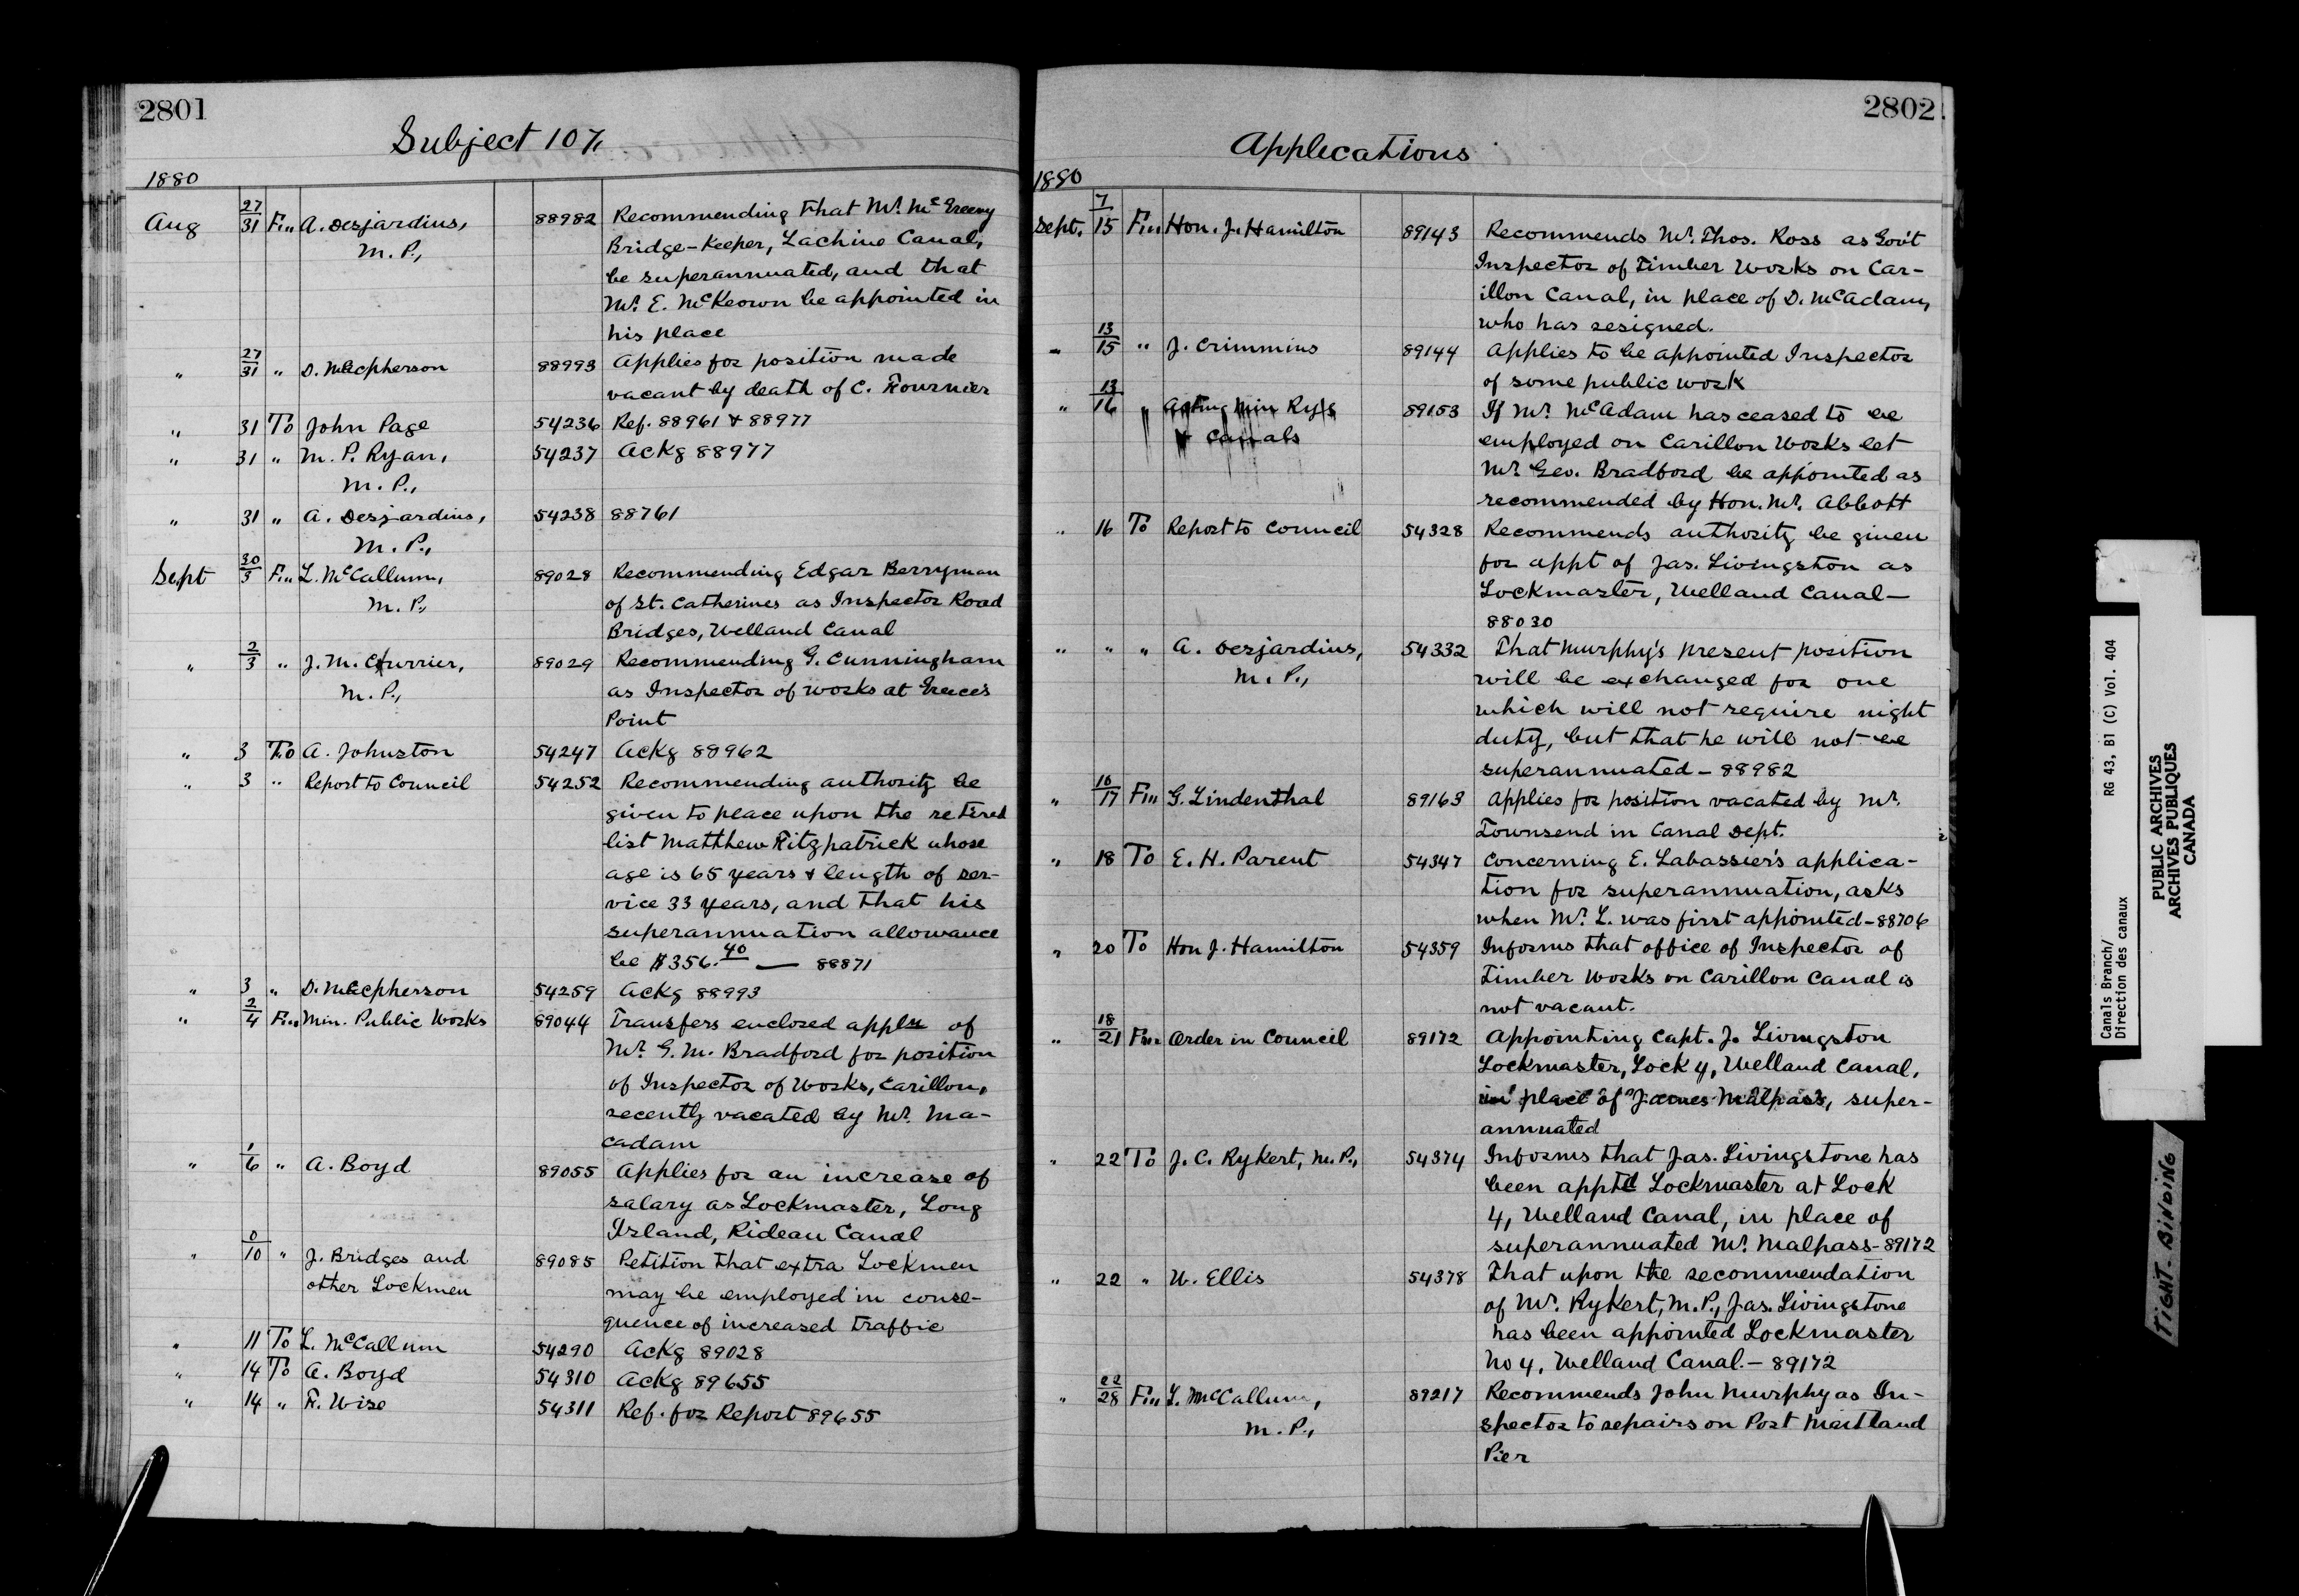 2801
Subject 107,
1880
Aug 27/31 Fm A. Desjardins, 88982 Recommending that Mr. McGreevy
M.P., Bridge-Keeper, Lachine Canal,
be superannuated, and that
Mr. E. McKeown be appointed in
his place
" 27/31 " D. McPherson 88993 Applies for position made
vacant by death of C. Fournier
" 31 To John Page 54236 Ref. 88961 & 88977
" 31 " M. P. Ryan, 54237 Ackg 88977
M.P.,
" 31 " A. Desjardins, 54238 88761
M.P.,
Sept 30/3 Fm L. McCallum, 89028 Recommending Edgar Berryman
M.P., of St. Catherines as Inspector Road
Bridges, Welland Canal
" 2/3 " J. M. Currier, 89029 Recommending G. Cunningham
M.P., as Inspector of works at Greece's
Point
" 3 To A. Johnston 54247 Ackg 88962
" 3 " Report to Council 54252 Recommending authority be
given to place upon the retired
list Matthew Fitzpatrick whose
age is 65 years & length of ser-
vice 33 years, and that his
superannuation allowance
be $356.40 — 88871
" 3 " D. McPherson 54259 Ackg 88993
" 2/4 Fm Min. Public Works 89044 Transfers enclosed appln of
Mr. G. M. Bradford for position
of Inspector of Works, Carillon,
recently vacated by Mr. Ma-
cadam
" 1/6 " A. Boyd 89055 Applies for an increase of
salary as Lockmaster, Long
Island, Rideau Canal
" 0/10 " J. Bridges and 89085 Petition that extra Lockmen
other Lockmen may be employed in conse-
quence of increased traffic
" 11 To L. McCallum 54290 Ackg 89028
" 14 To A. Boyd 54310 Ackg 89655
" 14 " F. Wise 54311 Ref. for Report 89655
2802
Applecations
1880
Sept. 7/15 Fm Hon. J. Hamilton 89143 Recommends Mr. Thos. Ross as Gov't
Inspector of Timber Works on Car-
illon Canal, in place of D. McAdam,
who has resigned.
" 13/15 " J. Crimmins 89144 Applies to be appointed Inspector
of some public work
" 13/16 " Acting Min Rys 89153 If Mr. McAdam has ceased to be
& Canals employed on Carillon Works let
Mr. Geo. Bradford be appointed as
recommended by Hon. Mr. Abbott
" 16 To Report to Council 54328 Recommends authority be given
for appt of Jas. Livingston as
Lockmaster, Welland Canal—
88030
" " " A. Desjardins, 54332 That Murphy's present position
M.P., will be exchanged for one
which will not require night
duty, but that he will not be
superannuated - 88982
" 16/17 Fm G. Lindenthal 89163 Applies for position vacated by Mr.
Townsend in Canal Dept.
" 18 To E. H. Parent 54347 Concerning E. Labassier's applica-
tion for superannuation, asks
when Mr. L. was first appointed-88706
" 20 To Hon J. Hamilton 54359 Informs that office of Inspector of
Timber Works on Carillon Canal is
not vacant.
" 18/21 Fm Order in Council 89172 Appointing Capt. J. Livingston
Lockmaster, Lock 4, Welland Canal,
in place of James Malpass, super-
annuated
" 22 To J. C. Rykert, M.P., 54374 Informs that Jas. Livingstone has
been apptd Lockmaster at Lock
4, Welland Canal, in place of
superannuated Mr. Malpass-89172
" 22 " W. Ellis 54378 That upon the recommendation
of Mr. Rykert, M.P., Jas. Livingstone
has been appointed Lockmaster
No 4, Welland Canal.- 89172
" 22/28 Fm L. McCallum, 89217 Recommends John Murphy as In-
M.P., spector to repairs on Port Maitland
Pier
Canals Branch/
Direction des canaux
RG 43, B1 (C) Vol. 404
PUBLIC ARCHIVES
ARCHIVES PUBLIQUES
CANADA
TIGHT BINDING